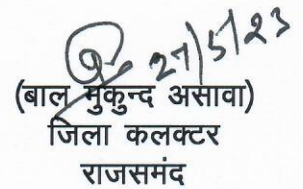 27/5/23
(बाल मुकुन्द असावा)
जिला कलक्टर
राजसमंद